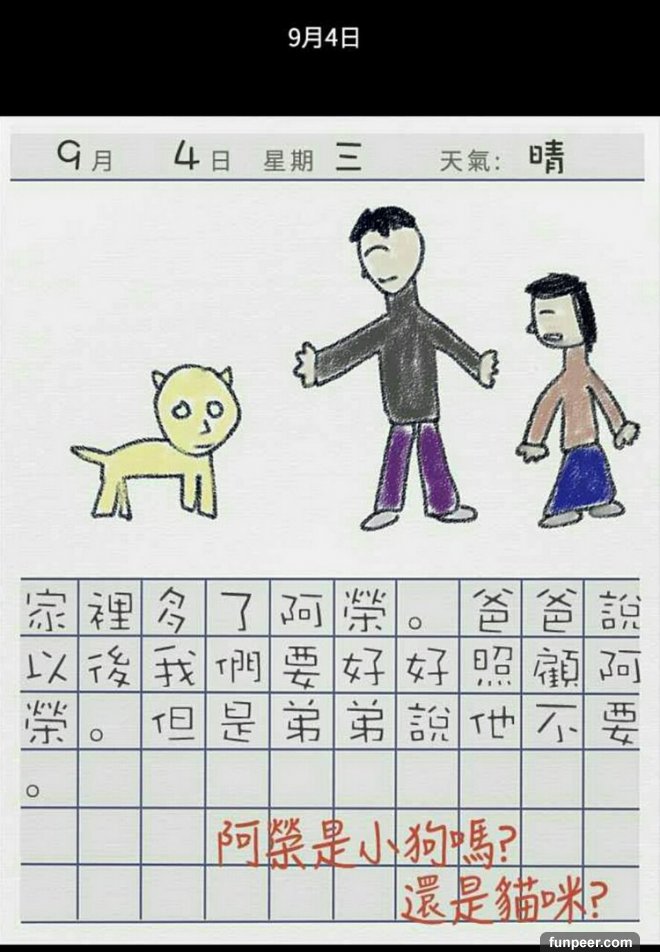 9月4日
9月 4日 星期三 天氣: 晴
家裡多了阿榮。爸爸說
以後我們要好好照顧阿
榮。但是弟弟說他不要
。
阿榮是小狗嗎?
還是貓咪?
funpeer.com